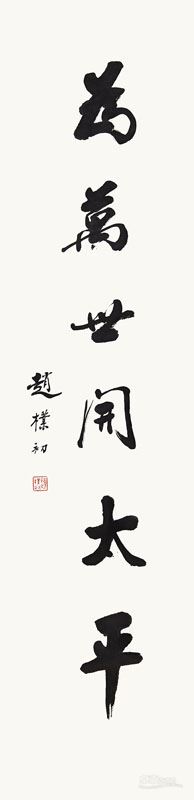 為萬世開太平
趙樸初